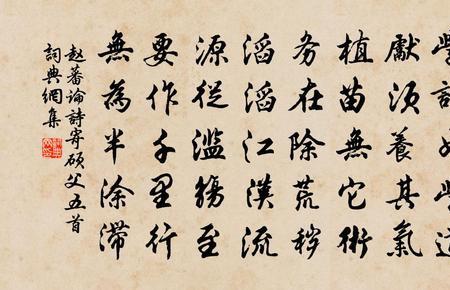 獻須養其氣
植苗無它術
務在除荒穢
滔滔江漢流
源從濫觴至
要作千里行
無為半涂滯
趙蕃論詩寄碩父五首
詞典網集